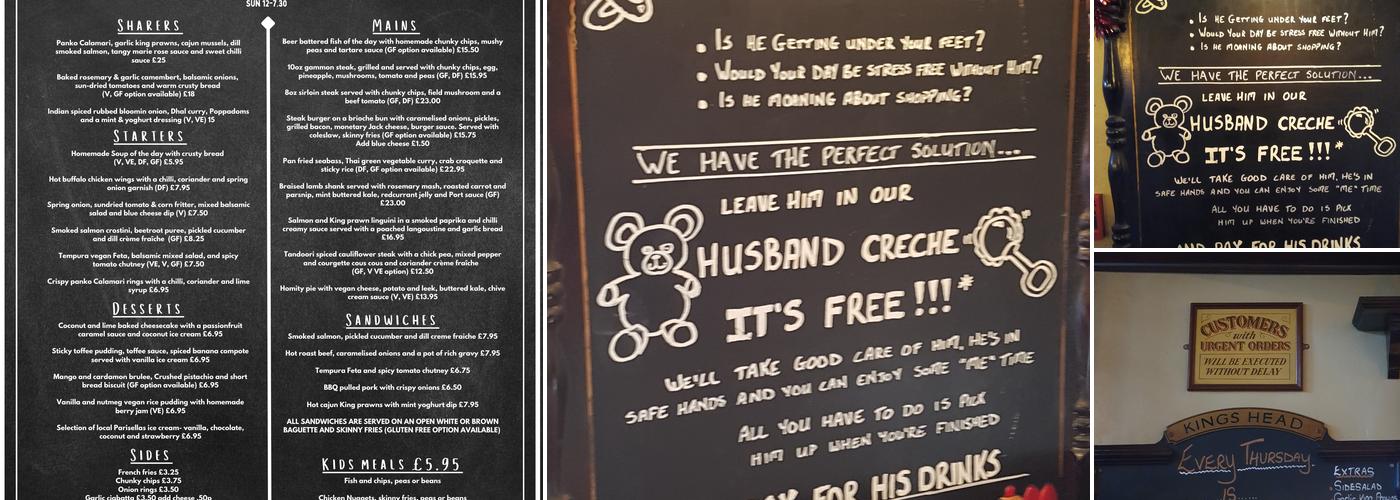 SUN 12-7.30
SHARERS
Panko Calamari, garlic king prawns, cajun mussels, dill
smoked salmon, tangy marie rose sauce and sweet chilli
sauce £25
Baked rosemary & garlic camembert, balsamic onions,
sun-dried tomatoes and warm crusty bread
(V, GF option available) £18
Indian spiced rubbed bloomin onion, Dhal curry, Poppadoms
and a mint & yoghurt dressing (V, VE) 15
STARTERS
Homemade Soup of the day with crusty bread
(V, VE, DF, GF) £5.95
Hot buffalo chicken wings with a chilli, coriander and spring
onion garnish (DF) £7.95
Spring onion, sundried tomato & corn fritter, mixed balsamic
salad and blue cheese dip (V) £7.50
Smoked salmon crostini, beetroot puree, pickled cucumber
and dill crème fraiche (GF) £8.25
Tempura vegan Feta, balsamic mixed salad, and spicy
tomato chutney (VE, V, GF) £7.50
Crispy panko Calamari rings with a chilli, coriander and lime
syrup £6.95
DESSERTS
Coconut and lime baked cheesecake with a passionfruit
caramel sauce and coconut ice cream £6.95
Sticky toffee pudding, toffee sauce, spiced banana compote
served with vanilla ice cream £6.95
Mango and cardamon brulee, Crushed pistachio and short
bread biscuit (GF option available) £6.95
Vanilla and nutmeg vegan rice pudding with homemade
berry jam (VE) £6.95
Selection of local Parisellas ice cream- vanilla, chocolate,
coconut and strawberry £6.95
SIDES
French fries £3.25
Chunky chips £3.75
Onion rings £3.50
Garlic ciabatta £3.50 add cheese .50p
MAINS
Beer battered fish of the day with homemade chunky chips, mushy
peas and tartare sauce (GF option available) £15.50
10oz gammon steak, grilled and served with chunky chips, egg,
pineapple, mushrooms, tomato and peas (GF, DF) £15.95
8oz sirloin steak served with chunky chips, field mushroom and a
beef tomato (GF, DF) £23.00
Steak burger on a brioche bun with caramelised onions, pickles,
grilled bacon, monetary Jack cheese, burger sauce. Served with
coleslaw, skinny fries (GF option available) £15.75
Add blue cheese £1.50
Pan fried seabass, Thai green vegetable curry, crab croquette and
sticky rice (DF, GF option available) £22.95
Braised lamb shank served with rosemary mash, roasted carrot and
parsnip, mint buttered kale, redcurrant jelly and Port sauce (GF)
£23.00
Salmon and King prawn linguini in a smoked paprika and chilli
creamy sauce served with a poached langoustine and garlic bread
£16.95
Tandoori spiced cauliflower steak with a chick pea, mixed pepper
and courgette cous cous and coriander crème fraîche
(GF, V VE option) £12.50
Homity pie with vegan cheese, potato and leek, buttered kale, chive
cream sauce (V, VE) £13.95
SANDWICHES
Smoked salmon, pickled cucumber and dill creme fraiche £7.95
Hot roast beef, caramelised onions and a pot of rich gravy £7.95
Tempura Feta and spicy tomato chutney £6.75
BBQ pulled pork with crispy onions £6.50
Hot cajun King prawns with mint yoghurt dip £7.95
ALL SANDWICHES ARE SERVED ON AN OPEN WHITE OR BROWN
BAGUETTE AND SKINNY FRIES (GLUTEN FREE OPTION AVAILABLE)
KIDS MEALS £5.95
Fish and chips, peas or beans
Chicken Nuggets, skinny fries, peas or beans
• IS HE GETTING UNDER YOUR FEET?
• WOULD YOUR DAY BE STRESS FREE WITHOUT HIM?
• IS HE MOANING ABOUT SHOPPING?
WE HAVE THE PERFECT SOLUTION...
LEAVE HIM IN OUR
HUSBAND CRECHE
IT'S FREE!!!*
WE'LL TAKE GOOD CARE OF HIM, HE'S IN
SAFE HANDS AND YOU CAN ENJOY SOME "ME" TIME
ALL YOU HAVE TO DO IS PICK
HIM UP WHEN YOU'RE FINISHED
PAY FOR HIS DRINKS
• IS HE GETTING UNDER YOUR FEET?
• WOULD YOUR DAY BE STRESS FREE WITHOUT HIM?
• IS HE MOANING ABOUT SHOPPING?
WE HAVE THE PERFECT SOLUTION...
LEAVE HIM IN OUR
HUSBAND CRECHE
IT'S FREE!!!*
WE'LL TAKE GOOD CARE OF HIM, HE'S IN
SAFE HANDS AND YOU CAN ENJOY SOME "ME" TIME
ALL YOU HAVE TO DO IS PICK
HIM UP WHEN YOU'RE FINISHED
AND PAY FOR HIS DRINKS
CUSTOMERS
with
URGENT ORDERS
WILL BE EXECUTED
WITHOUT DELAY
KINGS HEAD
EVERY THURSDAY
IS....
EXTRAS
• SIDESALAD